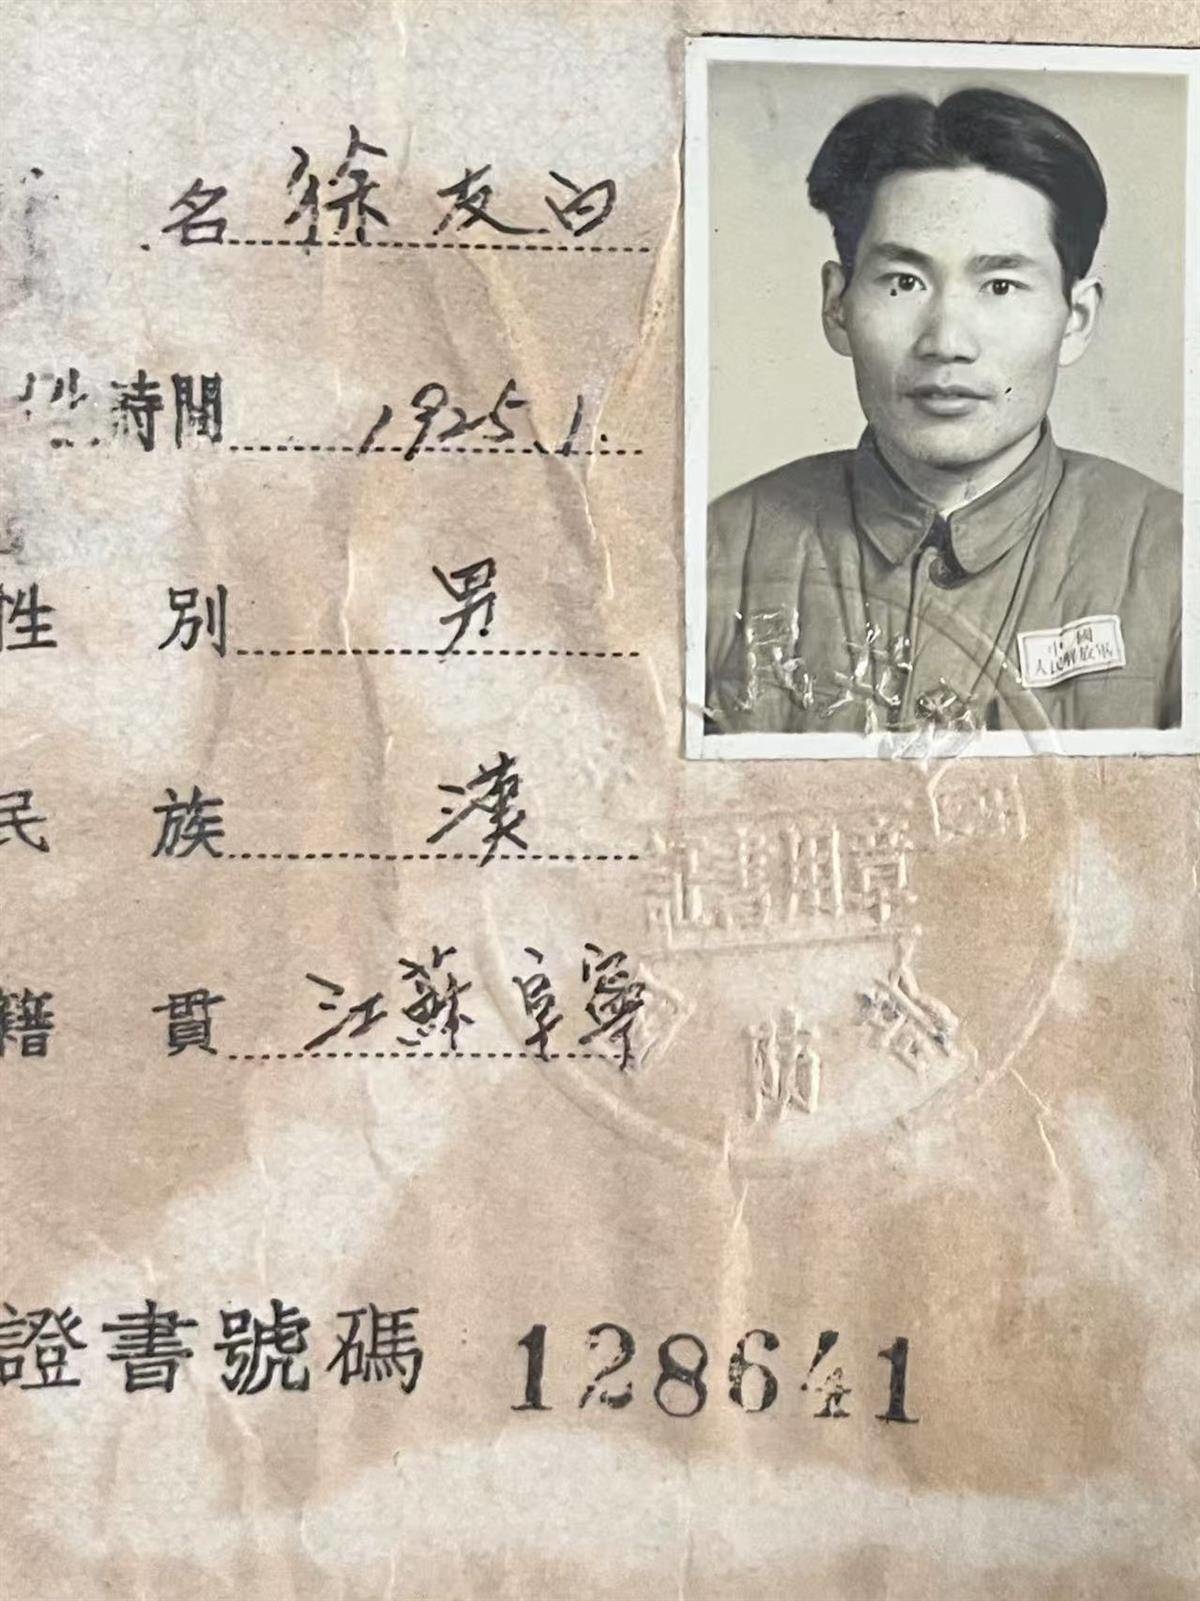 名 徐友白
時間 1925.1.
性別 男
民族 漢
籍貫 江蘇阜寧
證書號碼 128641
中國
人民解放軍
民共和國
章用書証
國防部